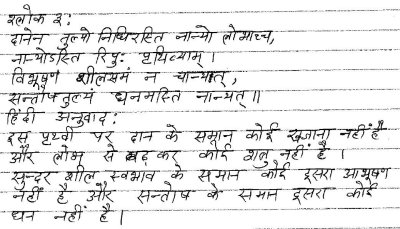 श्लोक ३:
दानेन तुल्यो निधिरस्ति नान्यो लोभाच्च,
नान्योऽस्ति रिपुः पृथिव्याम् ।
विभूषणं शीलसमं न चान्यत्,
सन्तोषतुल्यं धनमस्ति नान्यत् ॥
हिंदी अनुवाद:
इस पृथ्वी पर दान के समान कोई खजाना नहीं है
और लोभ से बढ़ कर कोई शत्रु नहीं है ।
सुन्दर शील स्वभाव के समान कोई दूसरा आभूषण
नहीं है और सन्तोष के समान दूसरा कोई
धन नहीं है ।